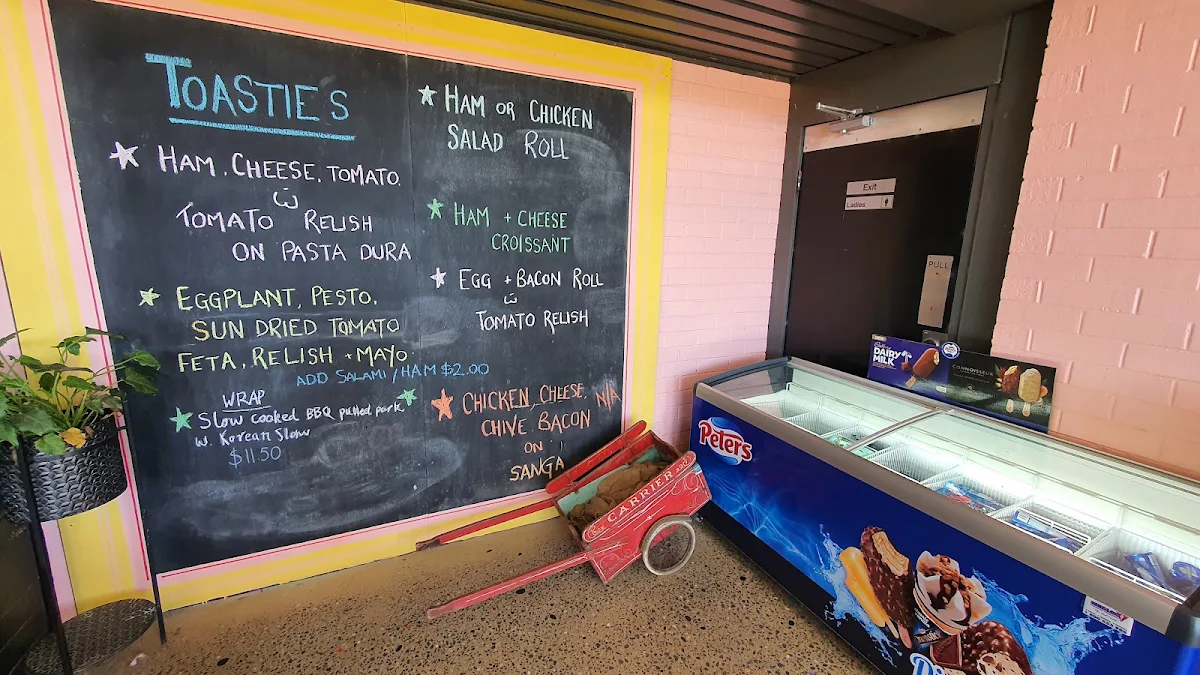 TOASTIES
HAM, CHEESE, TOMATO.
TOMATO RELISH
ON PASTA DURA
EGGPLANT, PESTO,
SUN DRIED TOMATO
FETA, RELISH + MAYO.
ADD SALAMI / HAM $2.00
WRAP
Slow cooked BBQ pulled pork
w. Korean Slaw
$11.50
HAM OR CHICKEN
SALAD ROLL
HAM + CHEESE
CROISSANT
EGG + BACON ROLL
TOMATO RELISH
CHICKEN, CHEESE, N/A
CHIVE BACON
ON
SANGA
CARRIER
Exit
Ladies
PULL
Cadbury
DAIRY
MILK
CONNOISSEUR
Peters